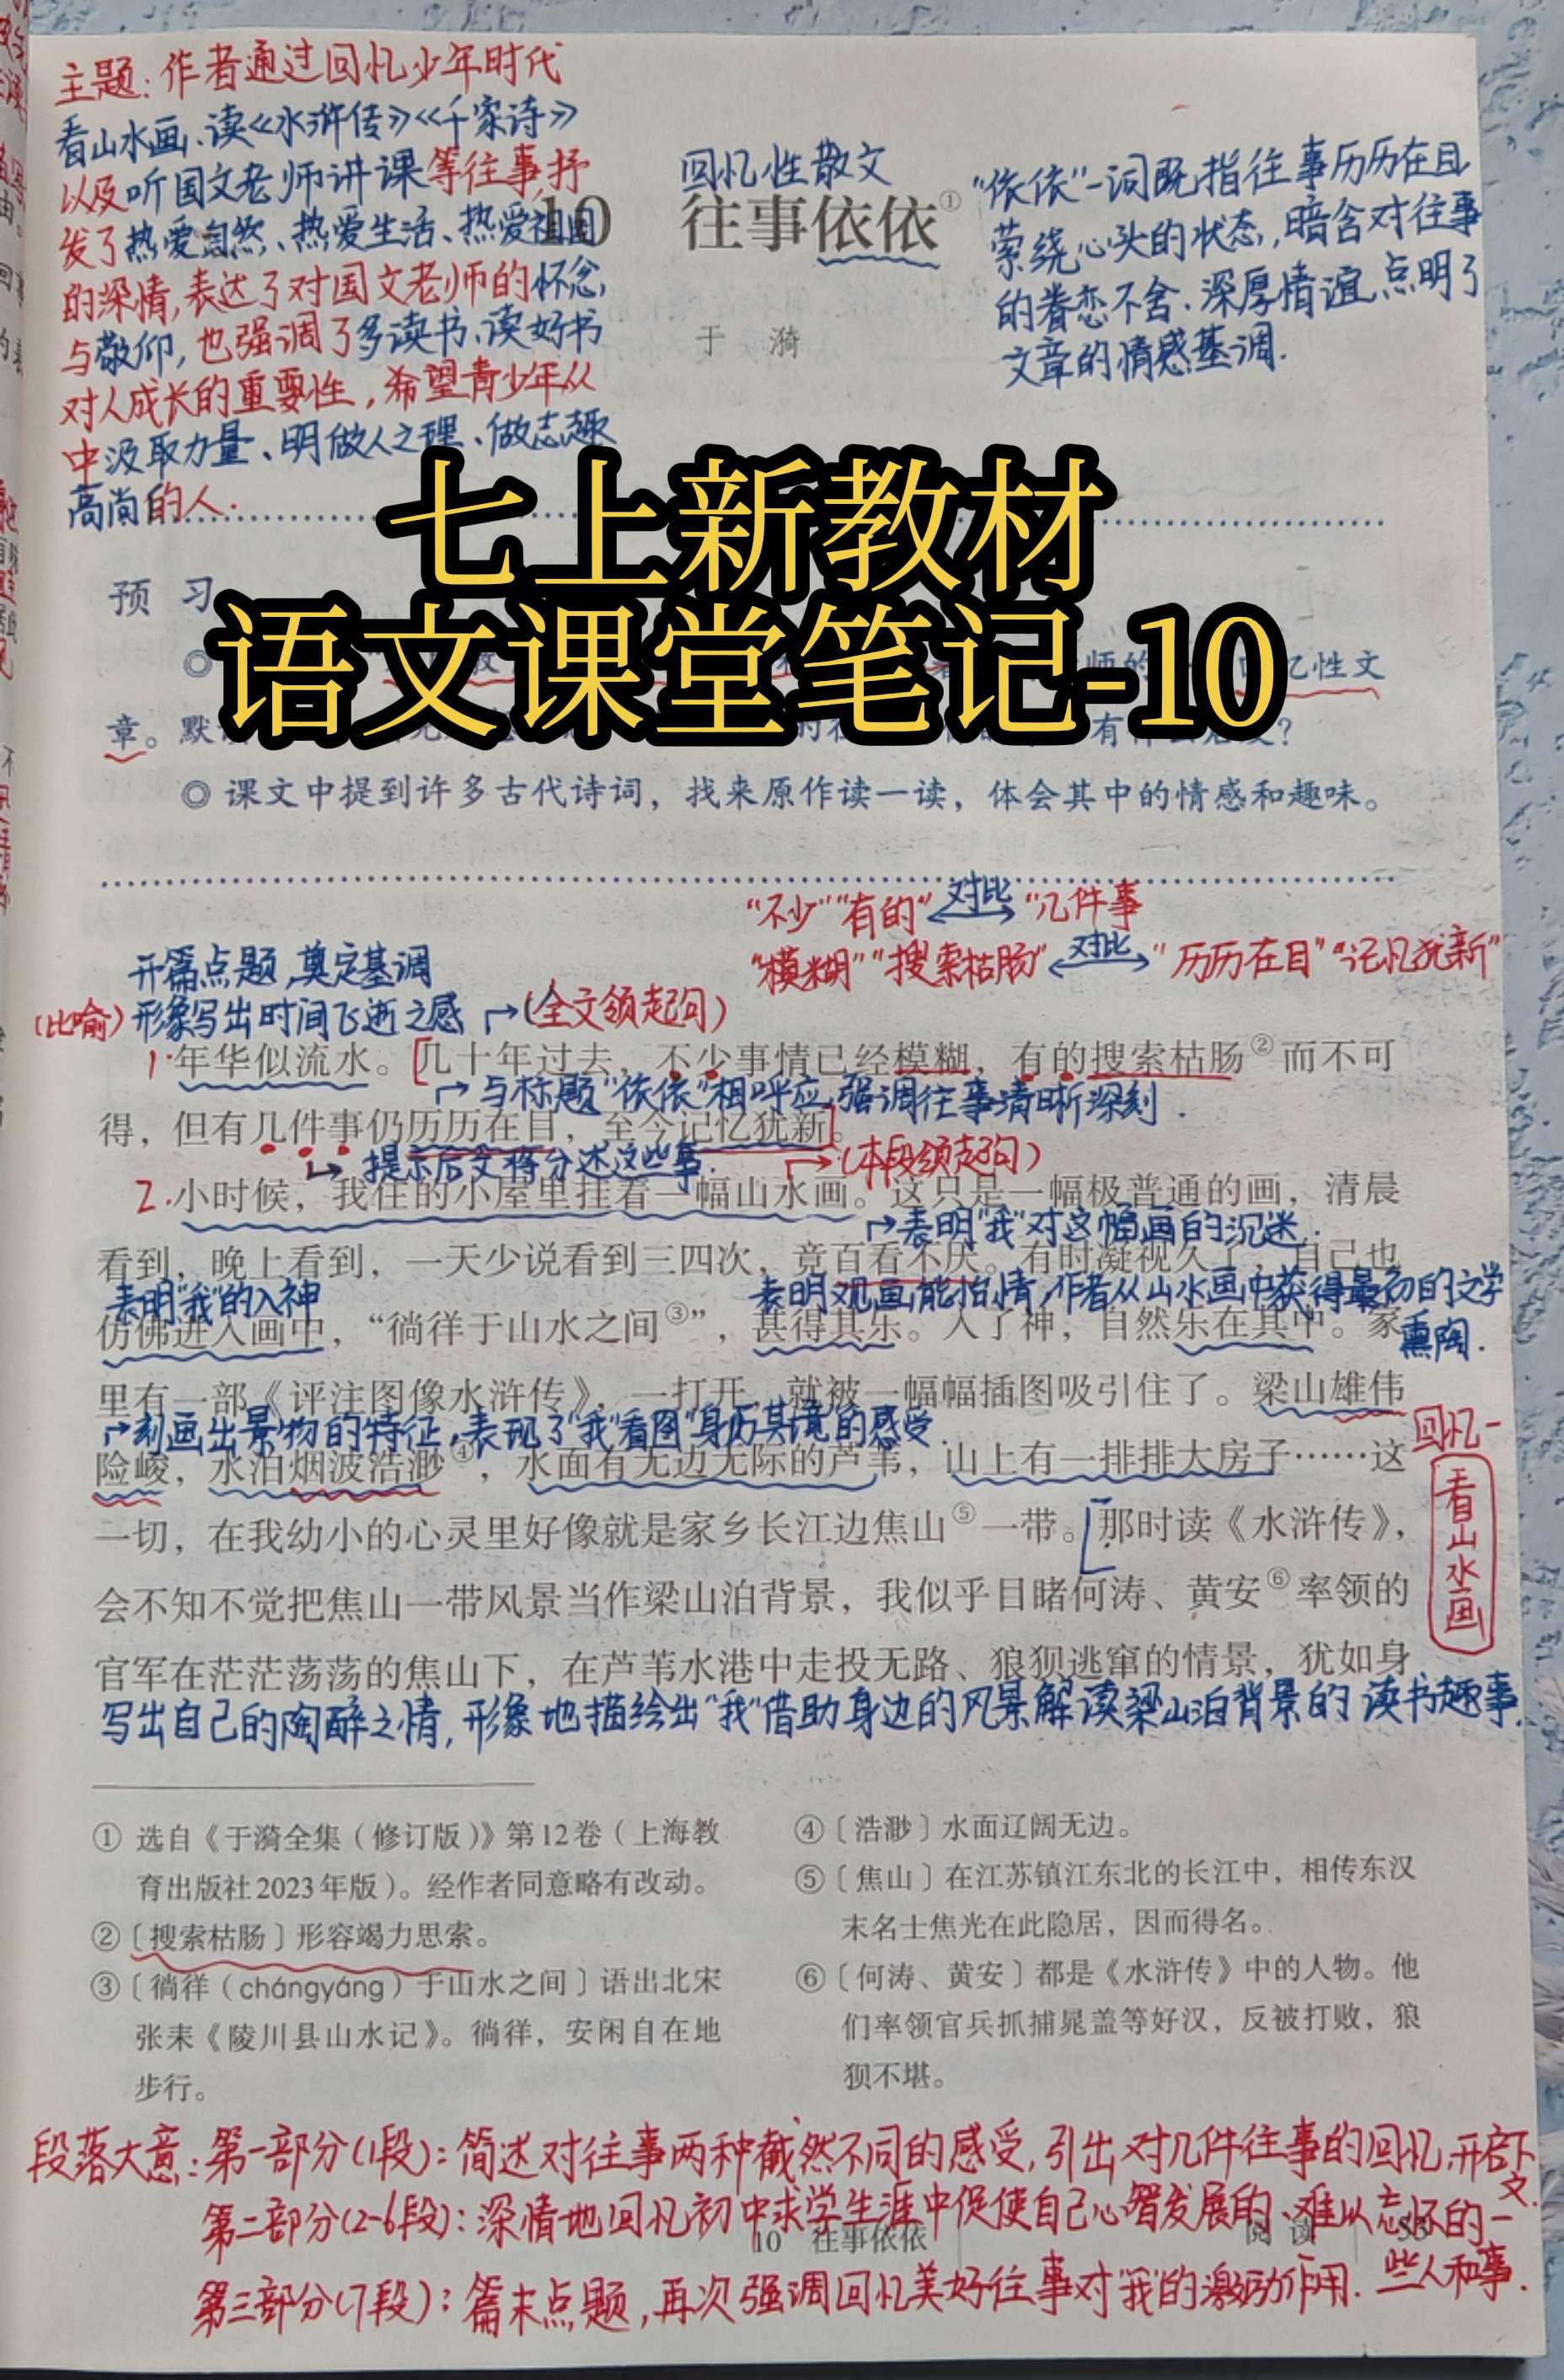 主题:作者通过回忆少年时代
看山水画、读《水浒传》《千家诗》
以及听国文老师讲课等往事,抒
发了热爱自然、热爱生活、热爱祖国
的深情,表达了对国文老师的怀念,
与敬仰,也强调了多读书、读好书
对人成长的重要性,希望青少年从
中汲取力量、明做人之理、做志趣
高尚的人.
回忆性散文
10 往事依依①
于 漪
“依依”一词既指往事历历在目
萦绕心头的状态,暗含对往事
的眷恋不舍.深厚情谊,点明了
文章的情感基调.
七上新教材
语文课堂笔记-10
预 习
◎
师的
忆性文
章。默读
有什么启发?
◎ 课文中提到许多古代诗词,找来原作读一读,体会其中的情感和趣味。
“不少”“有的” 对比 “几件事
“模糊”“搜索枯肠” 对比 “历历在目”“记忆犹新”
开篇点题,奠定基调
(比喻)形象写出时间飞逝之感 (全文领起句)
1.年华似流水。几十年过去,不少事情已经模糊,有的搜索枯肠②而不可
与标题“依依”相呼应,强调往事清晰深刻.
得,但有几件事仍历历在目,至今记忆犹新。
提示后文将分述这些事. (本段领起句)
2.小时候,我住的小屋里挂着一幅山水画。这只是一幅极普通的画,清晨
表明“我”对这幅画的沉迷.
看到,晚上看到,一天少说看到三四次,竟百看不厌。有时凝视久了,自己也
表明“我”的入神 表明观画能怡情,作者从山水画中获得最初的文学
熏陶.
仿佛进入画中,“徜徉于山水之间③”,甚得其乐。入了神,自然乐在其中。家
里有一部《评注图像水浒传》,一打开,就被一幅幅插图吸引住了。梁山雄伟
刻画出景物的特征,表现了“我”看图“身历其境”的感受.
险峻,水泊烟波浩渺④,水面有无边无际的芦苇,山上有一排排大房子……这
回忆一
看山水画
一切,在我幼小的心灵里好像就是家乡长江边焦山⑤一带。那时读《水浒传》,
会不知不觉把焦山一带风景当作梁山泊背景,我似乎目睹何涛、黄安⑥率领的
官军在茫茫荡荡的焦山下,在芦苇水港中走投无路、狼狈逃窜的情景,犹如身
写出自己的陶醉之情,形象地描绘出“我”借助身边的风景解读梁山泊背景的读书趣事.
① 选自《于漪全集(修订版)》第12卷(上海教
育出版社2023年版)。经作者同意略有改动。
②〔搜索枯肠〕形容竭力思索。
③〔徜徉(chángyáng)于山水之间〕语出北宋
张耒《陵川县山水记》。徜徉,安闲自在地
步行。
④〔浩渺〕水面辽阔无边。
⑤〔焦山〕在江苏镇江东北的长江中,相传东汉
末名士焦光在此隐居,因而得名。
⑥〔何涛、黄安〕都是《水浒传》中的人物。他
们率领官兵抓捕晁盖等好汉,反被打败,狼
狈不堪。
段落大意:第一部分(1段):简述对往事两种截然不同的感受,引出对几件往事的回忆,开启下
文.
第二部分(2-6段):深情地回忆初中求学生涯中促使自己心智发展的、难以忘怀的一
些人和事.
10 往事依依 阅读 53
第三部分(7段):篇末点题,再次强调回忆美好往事对“我”的激励作用.